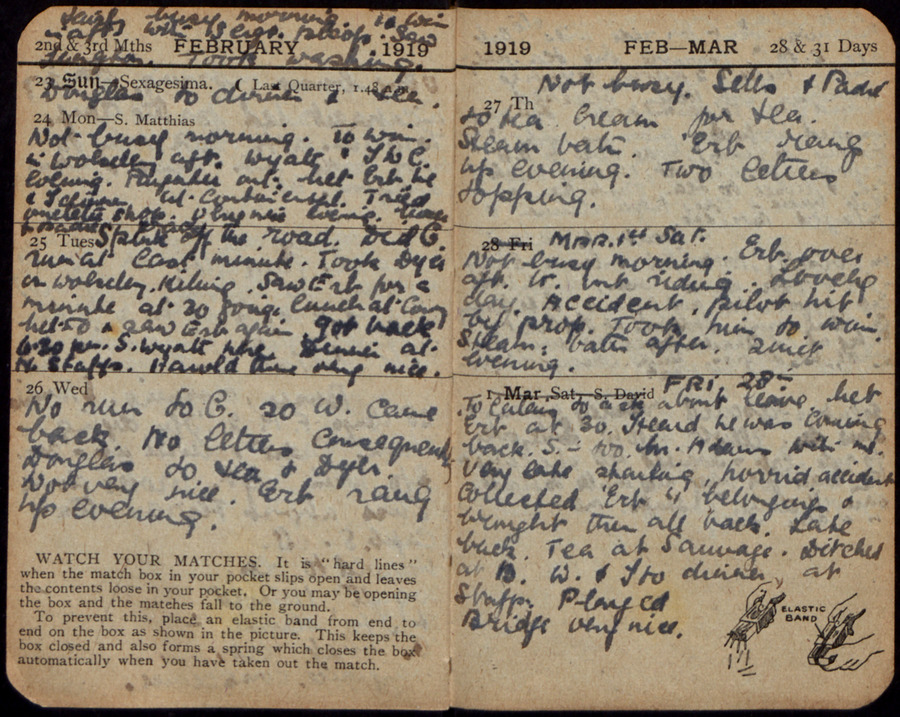 Fairly busy morning. To Wim
aft. with
2nd & 3rd Mths FEBRUARY 1919
Took washing.
23 Sun—Sexagesima. ( Last Quarter, 1.48 a.m.
Douglas to dinner & tea.
24 Mon—S. Matthias
Not busy morning. To Wim.
in Wolseley aft. Wyatt & I to C.
evening. met Erb he
& I dinner at Continental. Tried
shop.
25 Tues Spent off the road. Did C.
run at last minute. Took Dyer
in Wolseley. Saw Erb for a
minute at 20 going. Lunch at Con
het 50 & saw Erb again got back
6.30 pm. S. Wyatt here Dinner at
H Staffs. Harold there very nice.
26 Wed
No run to C. 20 W. Came
back. No letters consequently
Douglas to tea & Dyer
Not very nice. Erb rang
up evening.
WATCH YOUR MATCHES. It is "hard lines"
when the match box in your pocket slips open and leaves
the contents loose in your pocket. Or you may be opening
the box and the matches fall to the ground.
To prevent this, place an elastic band from end to
end on the box as shown in the picture. This keeps the
box closed and also forms a spring which closes the box
automatically when you have taken out the match.
1919 FEB—MAR 28 & 31 Days
Not busy. Sells & Padd
27 Th
to tea Cream for tea.
Steam bath. Erb rang
up evening. Two letters
topping.
28 Fri Mar. 1st Sat.
Not busy morning. Erb over
aft. to riding. Lovely
day. Accident, pilot hit
by prop. Took him to Wim
Steam bath after. Quiet
evening.
1 Mar Sat—S. David FRI 28th
To Calais to ask about leave. het
Erb at 30. Heard he was coming
back. S. - 50. Mr. Adams with us.
Very late starting, horrid accident
Collected Erb's belongings &
brought them all back. Late
back. Tea at Sauvage. Ditched
at B. W. & I to dinner, at
Staffs. Played
Bridge very nice.
ELASTIC
BAND